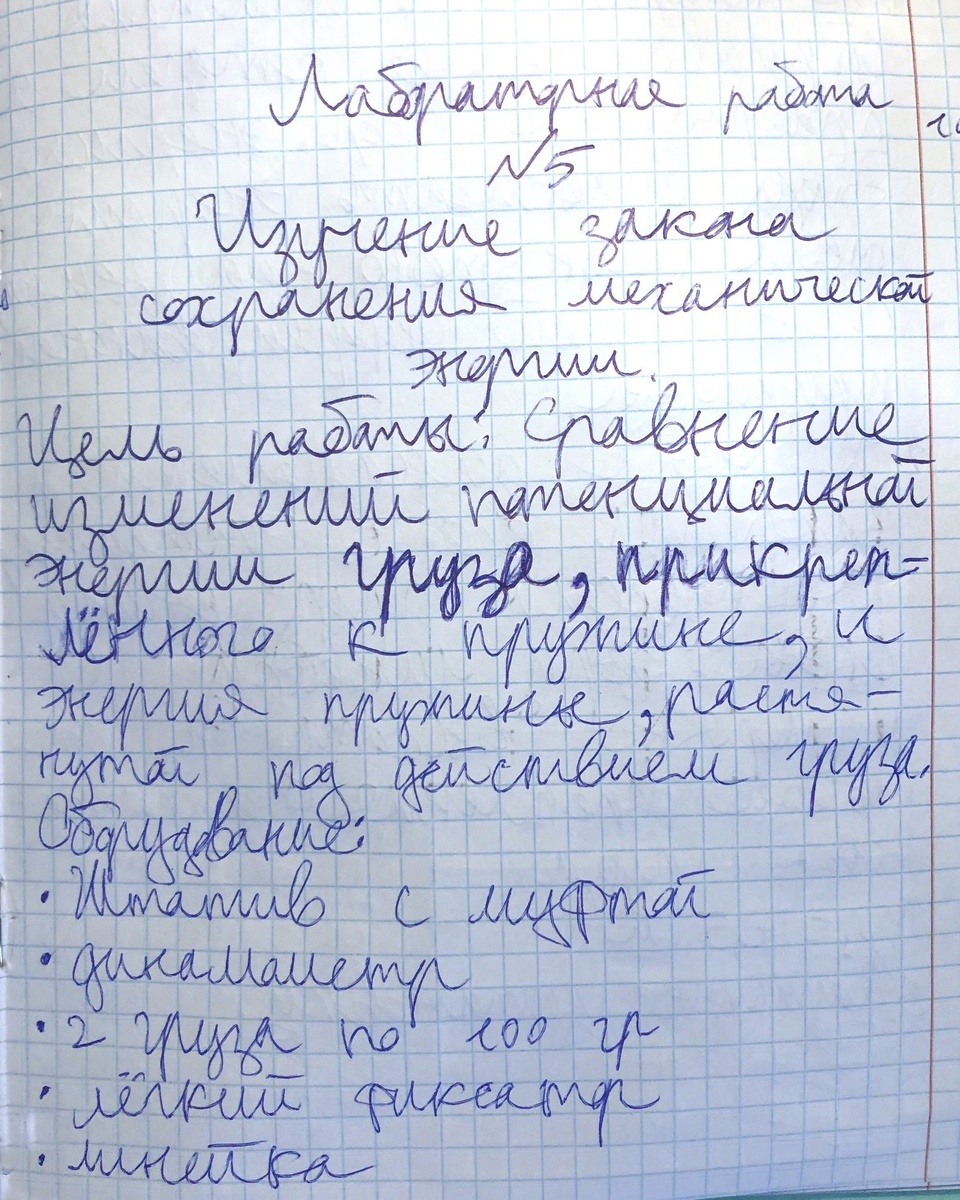 Лабораторная работа
№5
Изучение закона
сохранения механической
энергии.
Цель работы: Сравнение
изменений потенциальной
энергии груза, прикреп-
лённого к пружине, и
энергия пружины, растя-
нутой под действием груза.
Оборудование:
• Штатив с муфтой
• динамометр
• 2 груза по 100 гр
• лёгкий фиксатор
• линейка